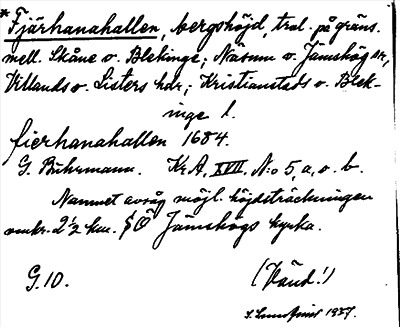 * Fjärhanahallen, bergshöjd, trol. på gräns.
mell. Skåne o. Blekinge; Näsum o. Jämshög snr,
Villands o. Listers hdr; Kristianstads o. Blek-
inge l.
fierhanahallen 1684.
G. Buhrmann. Kr.A, XVII, N:o 5, a, o. b.
Namnet avsåg möjl. höjdsträckningen
omkr. 2 1/2 km. SÖ Jämshögs kyrka.
G.10. (Vänd!)
1937.